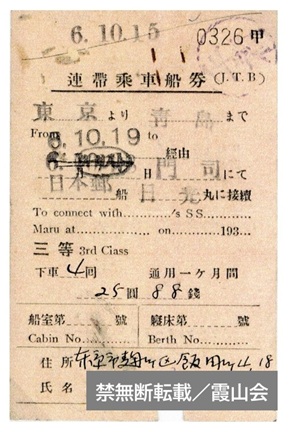 6.10.15
0326 甲
連帶乗車船券 (J.T.B)
東京より青島まで
From 6.10.19 to
經由
日 門司にて
日本郵船 日光丸に接續
To connect with............'s SS............
Maru at............ on............193...
三等 3rd Class
下車4回 通用一ケ月間
25圓88錢
船室第 號 寢床第 號
Cabin No. Berth No.
住所 東京市麹町区飯田町4,18
氏名
禁無断転載／霞山会